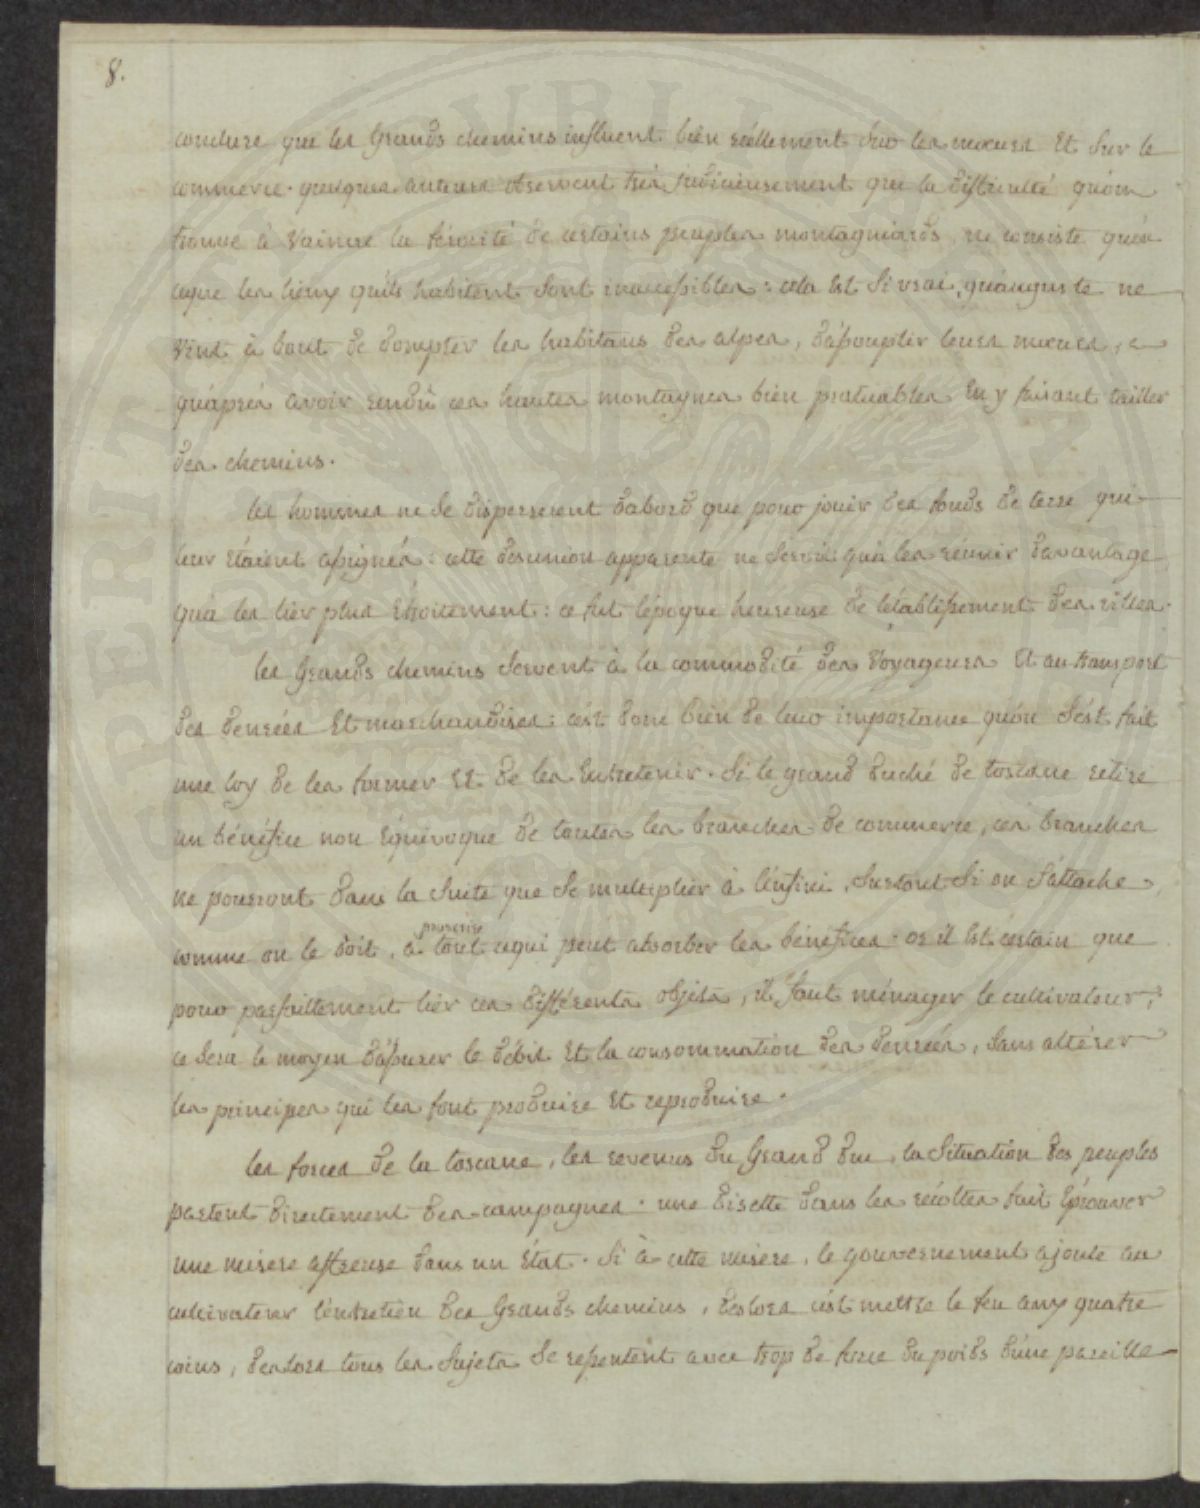 8.
conclure que les Grands chemins influent bien réellement sur les mœurs Et sur le
commerce. quelques auteurs observent très judicieusement que la difficulté qu'on
trouve à vaincre la férocité de certains peuples montagniards, ne consiste qu'en
ceque les lieux qu'ils habitent sont inaccessibles : cela Est si vrai, qu'auguste ne
vint à bout de dompter les habitans des alpes, d'assouplir leurs mœurs,
qu'après avoir rendu ces hautes montagnes bien pratiquables En y faisant tailler
des chemins.
les hommes ne se disperserent d'abord que pour jouir des fonds de terre qui
leur Etaient assignés : cette désunion apparente ne servit qu'à les réunir davantage
qu'à les lier plus Etroitement : ce fut l'époque heureuse de l'établissement des villes.
les Grands chemins servent à la commodité des Voyageurs Et au transport
des denrées Et marchandises : c'est donc bien de leur importance qu'on s'est fait
une loy de les former Et de les Entretenir. Si le grand duché de toscane retire
un bénéfice non Equivoque de toutes les branches de commerce, ces branches
ne pourront dans la suite que se multiplier à l'infini, surtout si on s'attache,
comme on le doit, à proscrire tout cequi peut absorber les bénéfices. or il Est certain que
pour parfaittement lier ces différents objets, il faut ménager le cultivateur ;
ce sera le moyen d'assurer le débit Et la consommation des denrées, sans altérer
les principes qui les font produire Et reproduire.
les forces de la toscane, les revenus du Grand duc, la situation des peuples
partent directement des campagnes. une disette dans les récoltes fait Eprouver
une misere affreuse dans un Etat. Si à cette misere, le gouvernement ajoute au
cultivateur l'entretien des Grands chemins, deslors c'est mettre le feu aux quatre
coins, deslors tous les sujets se ressentent avec trop de force du poids d'une pareille